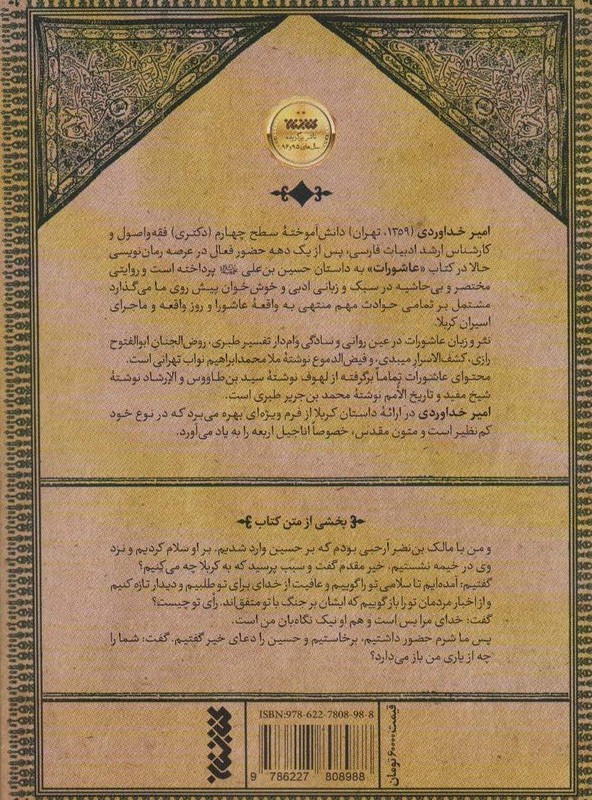 ستاره
ناشر برگزیده
سال‌های ۹۵ و ۹۶
امیر خداوردی (۱۳۵۹، تهران) دانش‌آموختهٔ سطح چهارم (دکتری) فقه‌واصول و
کارشناس ارشد ادبیات فارسی، پس از یک دهه حضور فعال در عرصه رمان‌نویسی
حالا در کتاب «عاشورات» به داستان حسین بن‌علی پرداخته است و روایتی
مختصر و بی‌حاشیه در سبک و زبانی ادبی و خوش‌خوان پیش روی ما می‌گذارد
مشتمل بر تمامی حوادث مهم منتهی به واقعهٔ عاشورا و روز واقعه و ماجرای
اسیران کربلا.
نثر و زبان عاشورات در عین روانی و سادگی وام‌دار تفسیر طبری، روض‌الجنان ابوالفتوح
رازی، کشف‌الاسرار میبدی، و فیض‌الدموع نوشتهٔ ملا محمدابراهیم نواب تهرانی است.
محتوای عاشورات تماماً برگرفته از لهوف نوشتهٔ سید بن‌طاووس و الإرشاد نوشتهٔ
شیخ مفید و تاریخ الأمم نوشتهٔ محمد بن‌جریر طبری است.
امیر خداوردی در ارائهٔ داستان کربلا از فرم ویژه‌ای بهره می‌برد که در نوع خود
کم‌نظیر است و متون مقدس، خصوصاً اناجیل اربعه را به یاد می‌آورد.
بخشی از متن کتاب
و من با مالک بن‌نضر أرحبی بودم که بر حسین وارد شدیم. بر او سلام کردیم و نزد
وی در خیمه نشستیم. خیر مقدم گفت و سبب پرسید که به کربلا چه می‌کنیم؟
گفتیم: آمده‌ایم تا سلامی تو را گوییم و عافیت از خدای برای تو طلبیم و دیدار تازه کنیم
و از اخبار مردمان تو را باز گوییم که ایشان بر جنگ با تو متفق‌اند. رأی تو چیست؟
گفت: خدای مرا بس است و هم او نیک نگاه‌بان من است.
پس ما شرم حضور داشتیم، برخاستیم و حسین را دعای خیر گفتیم. گفت: شما را
چه از یاری من باز می‌دارد؟
ISBN: 978-622-7808-98-8
9 786227 808988
قیمت ۶۰۰۰۰ تومان